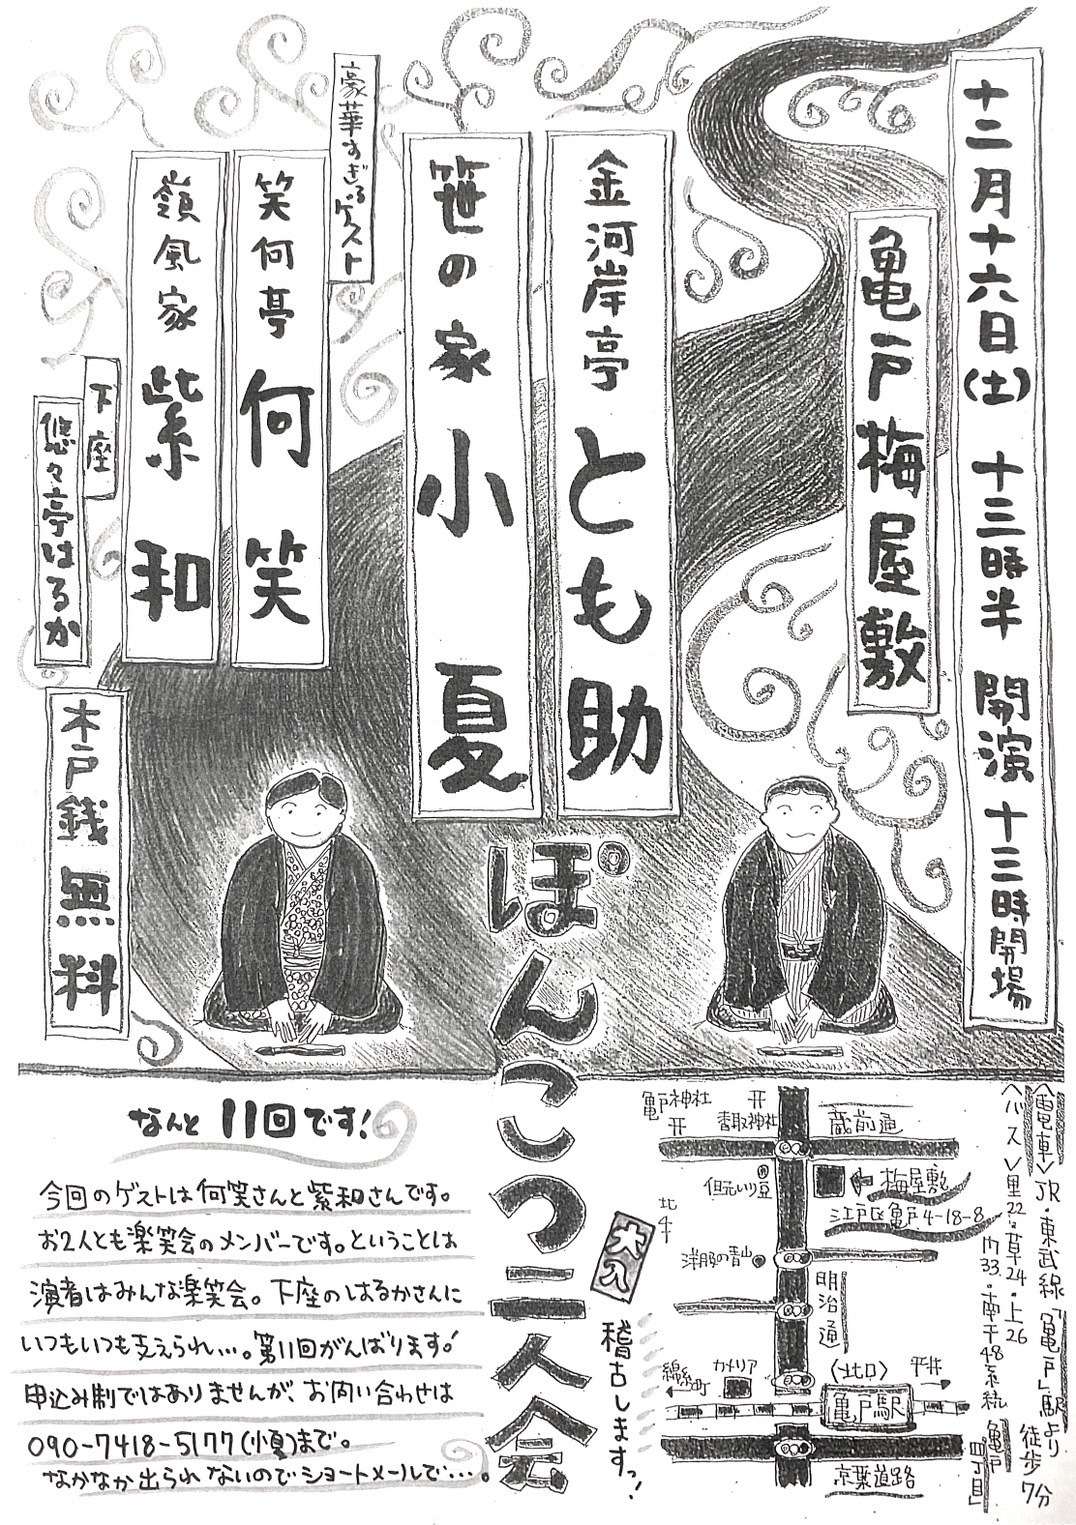 十二月十六日(土) 十三時半 開演 十三時開場
亀戸梅屋敷
金河岸亭 とも助
笹の家 小夏
豪華すぎるゲスト
笑何亭 何笑
嶺風家 紫和
下座
悠々亭はるか
木戸銭無料
ぽんこつ二人会
大入
稽古しますっ!
なんと11回です!
今回のゲストは何笑さんと紫和さんです。
お2人とも楽笑会のメンバーです。ということは
演者はみんな楽笑会。下座のはるかさんに
いつもいつも支えられ…。第11回がんばります!
申込み制ではありませんが、お問い合わせは
090-7418-5177(小夏)まで。
なかなか出られないのでショートメールで…。
<電車>JR・東武線「亀戸」駅より 徒歩7分
<バス>里22・草24・上26
門33・南千48系統 亀戸四丁目
亀戸神社
香取神社
蔵前通
但元いり豆
梅屋敷
江戸区亀戸4-18-8
北
洋服の青山
明治通
錦糸町
カメリア
(北口)
平井
亀戸駅
京葉道路